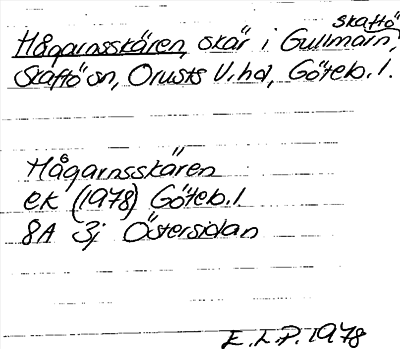 skaftö
Hågarnsskären, skär i Gullmarn,
Skaftö sn, Orusts V. hd, Göteb. l.
Hågarnsskären
ek (1978) Göteb. l
8A 3j Östersidan
E.L.P. 1978